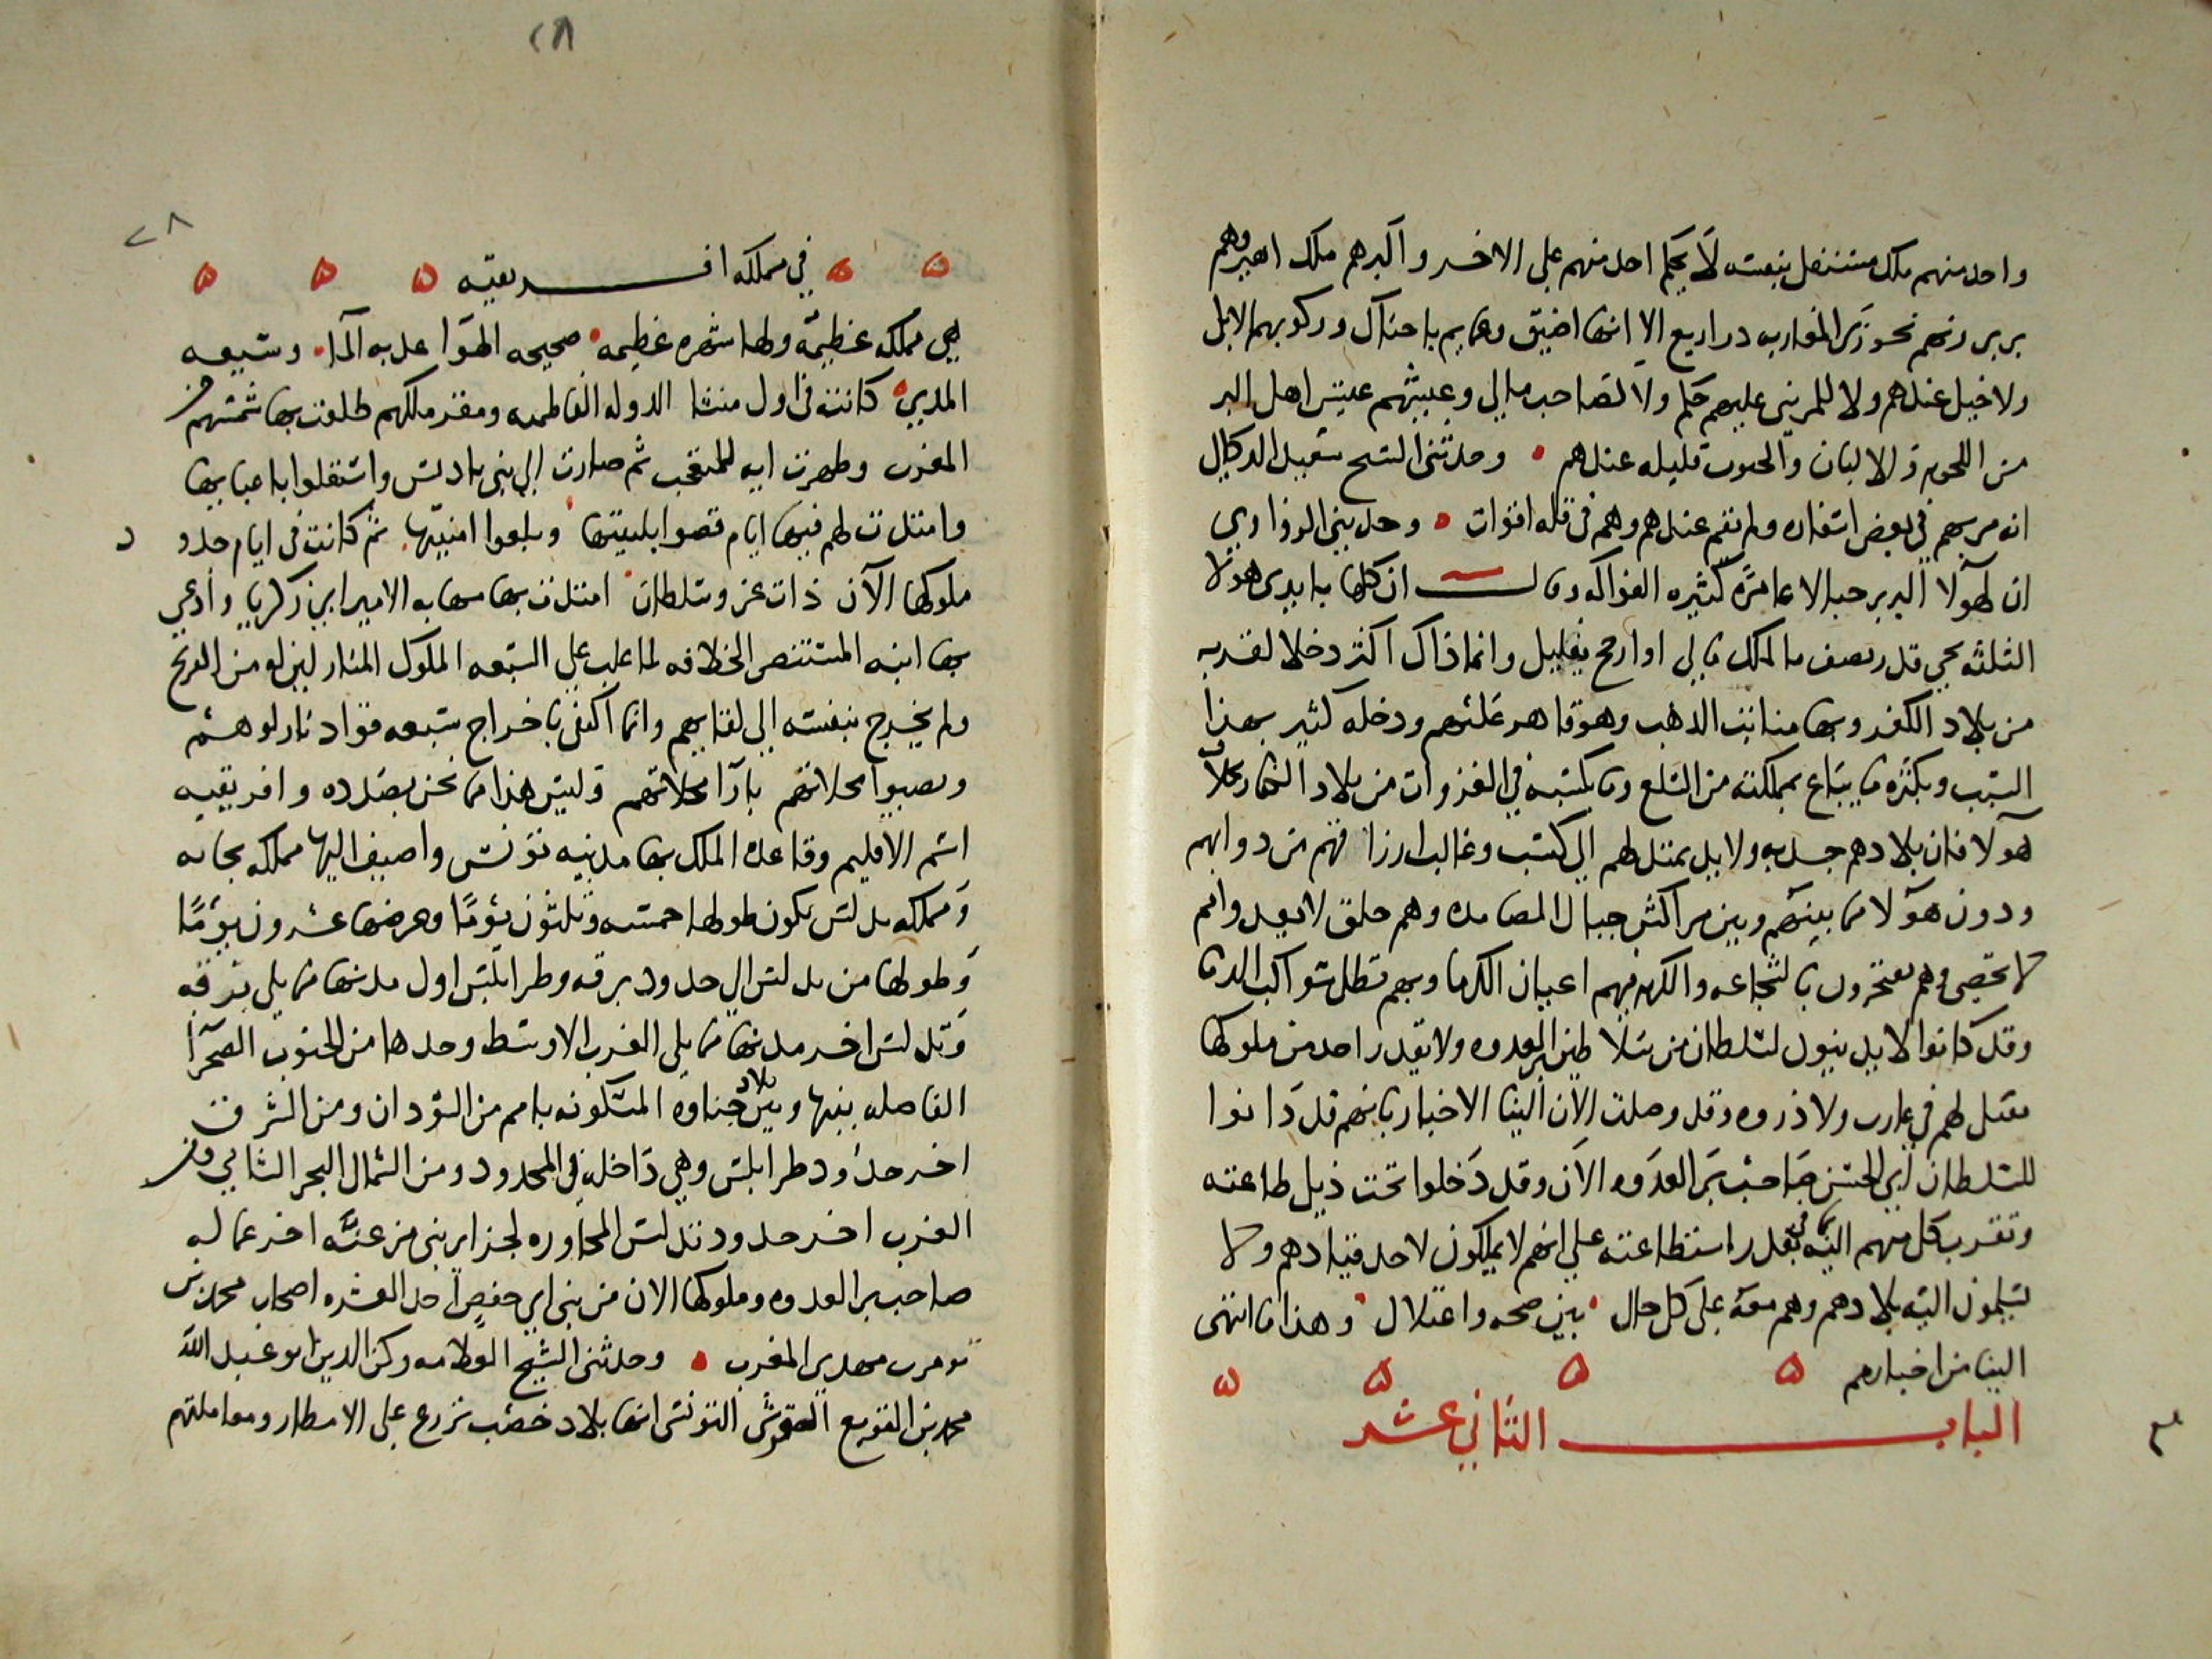 واحد منهم ملك مستقل بنفسه لا يحكم احد منهم على الاخر واكبرهم ملك اهير وهم
بربر زيهم نحو زي المغاربه دراريع الا انها اضيق وعمايم باحناك وركوبهم الابل
ولا خيل عندهم ولا للمريني عليهم حكم ولا لصاحب مالي وعيشهم عيش اهل البر
من اللحوم والالبان والحبوب قليله عندهم • وحدثني الشيخ سعيد الدكالي
انه مر بهم في بعض اسفاره ولم يقم عندهم وهم في قله اقوات • وحدثني الزواوي
ان لهولا البربر جبالا عامره كثيره الفواكه وقال ان كلما بايدي هولا
الثلثه يجي قدر نصف ما لملك مالي او ارجح بقليل وانما ذاك اكثر دخلا لقربه
من بلاد الكفر وبها منابت الذهب وهو قاهر عليهم ودخله كثير بهذا
السبب وبكثره ما يباع بمملكته من السلع وما يكسبه في الغزوات من بلاد الكفار بخلاف
هولا فان بلادهم جدبه ولا يد تمتد لهم الى كسب وغالب ارزاقهم من دوابهم
ودون هولا فما بينهم وبين مراكش جبال المصامده وهم خلق لا يعد وامم
لا تحصى وهم يفتخرون بالشجاعه والكرم فيهم اعيان الكرما وبهم تطلى شواكب الدما
وقد كانوا لا يدينون لسلطان من سلاطين بر العدوه ولا يقدر احد من ملوكها
يفتل لهم في غارب ولا ذروه وقد وصلت الان الينا الاخبار بانهم قد دانوا
للسلطان ابي الحسن صاحب بر العدوه الان وقد دخلوا تحت ذيل طاعته
وتقرب كل منهم اليه بما في قدر استطاعته على انهم لا يملكون لاحد قيادهم ولا
يسلمون اليه بلادهم وهم معه على كل حال • بين صحه واعتلال • وهذا ما انتهى
الينا من اخبارهم ۵ ۵ ۵ ۵
الباب الثاني عشر
٢٨
٢٨
۵ ۵ في مملكه افريقيه ۵ ۵ ۵
هي مملكه عظيمه ولها شهره عظيمه • صحيحه الهوا عذبه الما • وسيعه
المدى • كانت في اول منشا الدوله الفاطميه ومقر ملكهم طلعت بها شمسهم من
المغرب وظهرت ايه للمتعجب ثم صارت الى بني باديس واستقلوا باعبايها
وامتدت لهم فيها ايام قضوا بلبيتها وبلغوا امنيتها • ثم كانت في ايام جدود
ملوكها الآن ذات عز وسلطان • امتدت بها مهابه الامير ابي زكريا وادعى
بها ابنه المستنصر الخلافه لما غلب على السبعه الملوك المنازلين له من الفرنج
ولم يخرج بنفسه الى لقايهم وانما اكتفى باخراج سبعه قواد نازلوهم
ونصبوا محلاتهم بازا محلاتهم وليس هذا مما نحن بصدده وافريقيه
اسم الاقليم وقاعده الملك بها مدينه تونس واضيف اليها مملكه بجايه
ومملكه تدلس يكون طولها خمسه وثلثون يوما وعرضها عشرون يوما
وطولها من تدلس الى حدود برقه وطرابلس اول مدنها مما يلي برقه
وتدلس اخر مدنها مما يلي الغرب الاوسط وحدها من الجنوب الصحرا
الفاصله بينها وبين بلاد جناوه المسكونه بامم من السودان ومن الشرق
اخر حدود طرابلس وهي داخله في المحدود ومن الشمال البحر الشامي ومن
الغرب اخر حدود تدلس المجاوره لجزاير بني مزغنه اخر عماله
صاحب بر العدوه وملوكها الان من بني ابي حفص احد العشره اصحاب محمد بن
تومرت مهدي المغرب • وحدثني الشيخ العلامه ركن الدين ابو عبد الله
محمد بن القوبع القرشي التونسي انها بلاد خصب تزرع على الامطار ومعاملتهم